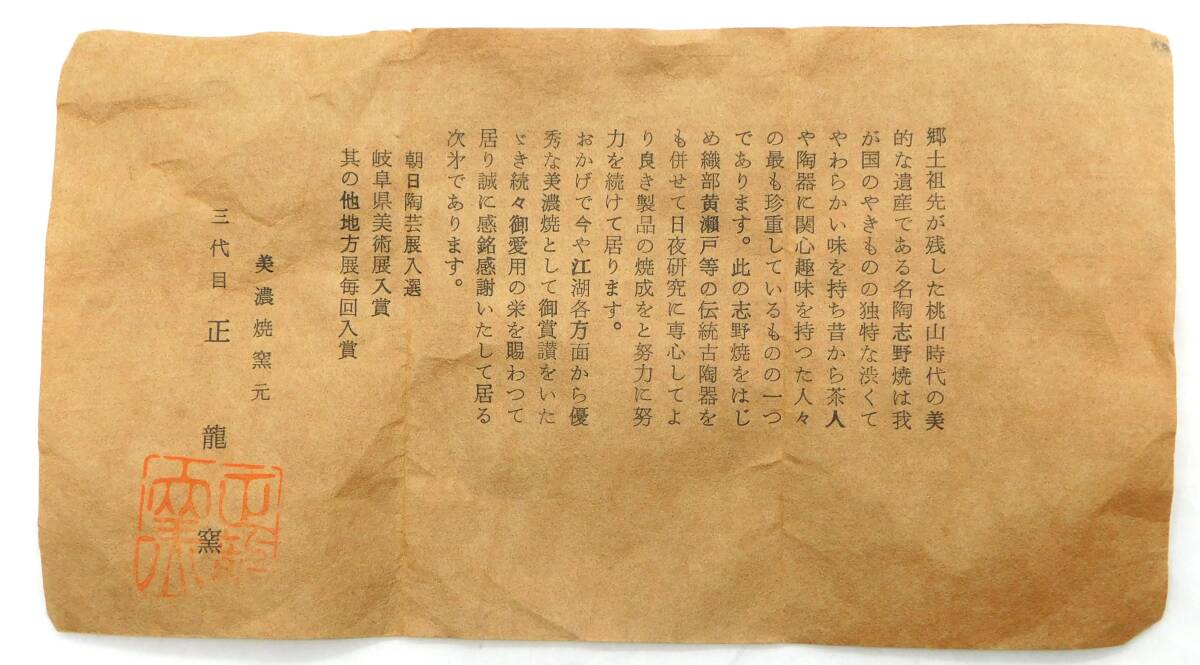 郷土祖先が残した桃山時代の美
的な遺産である名陶志野焼は我
が国のやきものの独特な渋くて
やわらかい味を持ち昔から茶人
や陶器に関心趣味を持つた人々
の最も珍重しているものの一つ
であります。此の志野焼をはじ
め織部黄瀬戸等の伝統古陶器を
も併せて日夜研究に専心してよ
り良き製品の焼成をと努力に努
力を続けて居ります。
おかげで今や江湖各方面から優
秀な美濃焼として御賞讃をいた
ゞき続々御愛用の栄を賜わつて
居り誠に感銘感謝いたして居る
次㐧であります。
朝日陶芸展入選
岐阜県美術展入賞
其の他地方展毎回入賞
美濃焼窯元
三代目 正龍窯